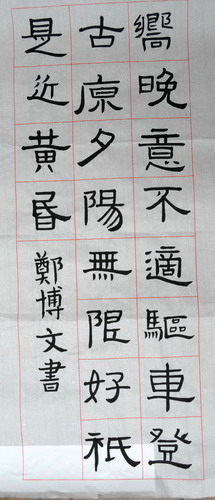 嚮晚意不適驅車登
古原夕陽無限好祇
是近黃昏
鄭博文書